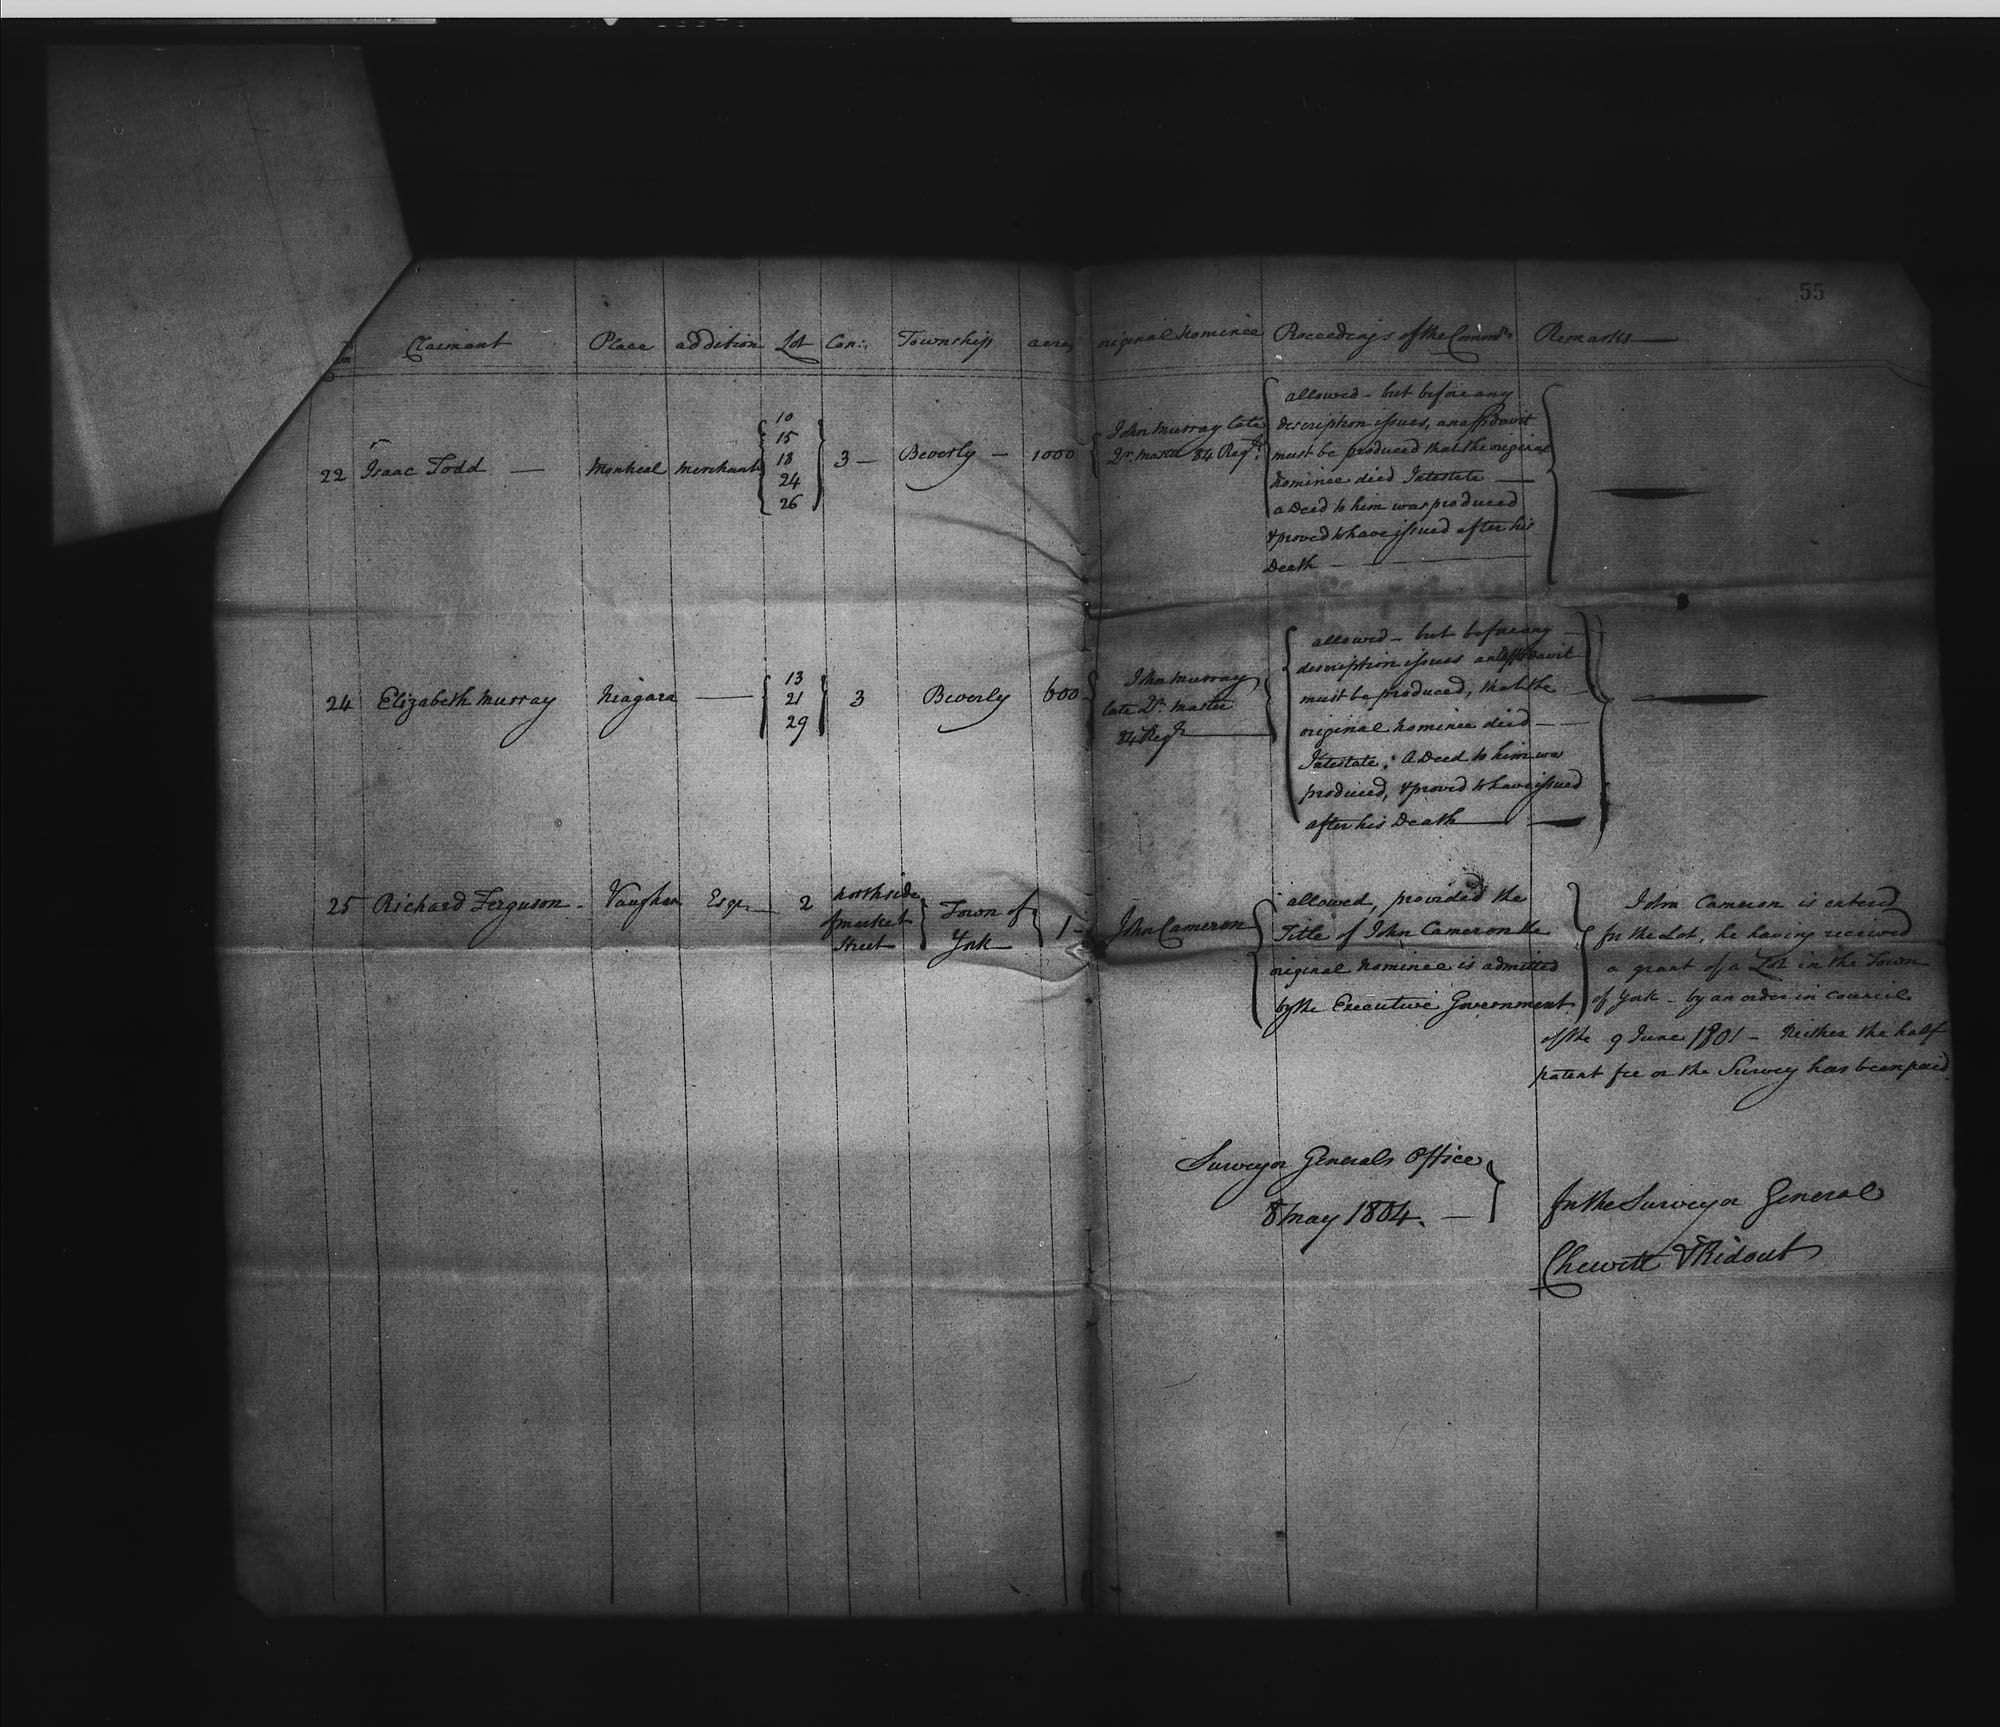 55
Claimant Place addition Lot Con: Township acres original Nominee Proceedings of the Commrs Remarks
22 Isaac Todd — Montreal Merchant
10
15
18
24
26
3 — Beverly — 1000
John Murray late
Qr. Master 84 Regt.
allowed - but before any
description issues, an affidavit
must be produced that the original
Nominee died Intestate —
a Deed to him was produced
& proved to have issued after his
Death —
24 Elizabeth Murray Niagara —
13
21
29
3 Beverly 600
John Murray
late Qr. Master
84 Regt
allowed - but before any —
description issues an affidavit
must be produced, that the —
original Nominee died —
Intestate: A Deed to him was
produced, & proved to have issued
after his Death —
25 Richard Ferguson - Vaughan Esqr — 2
North side
of market
Street
Town of
York
1 -
John Cameron
allowed, provided the
Title of John Cameron the
original Nominee is admitted
by the Executive Government.
John Cameron is entered
for the Lot, he having received
a grant of a Lot in the Town
of York - by an order in Council
of the 9 June 1801 - Neither the half
patent fee or the Survey has been paid.
Surveyor Generals Office
8 May 1804. —
For the Surveyor General
Chewett & Ridout